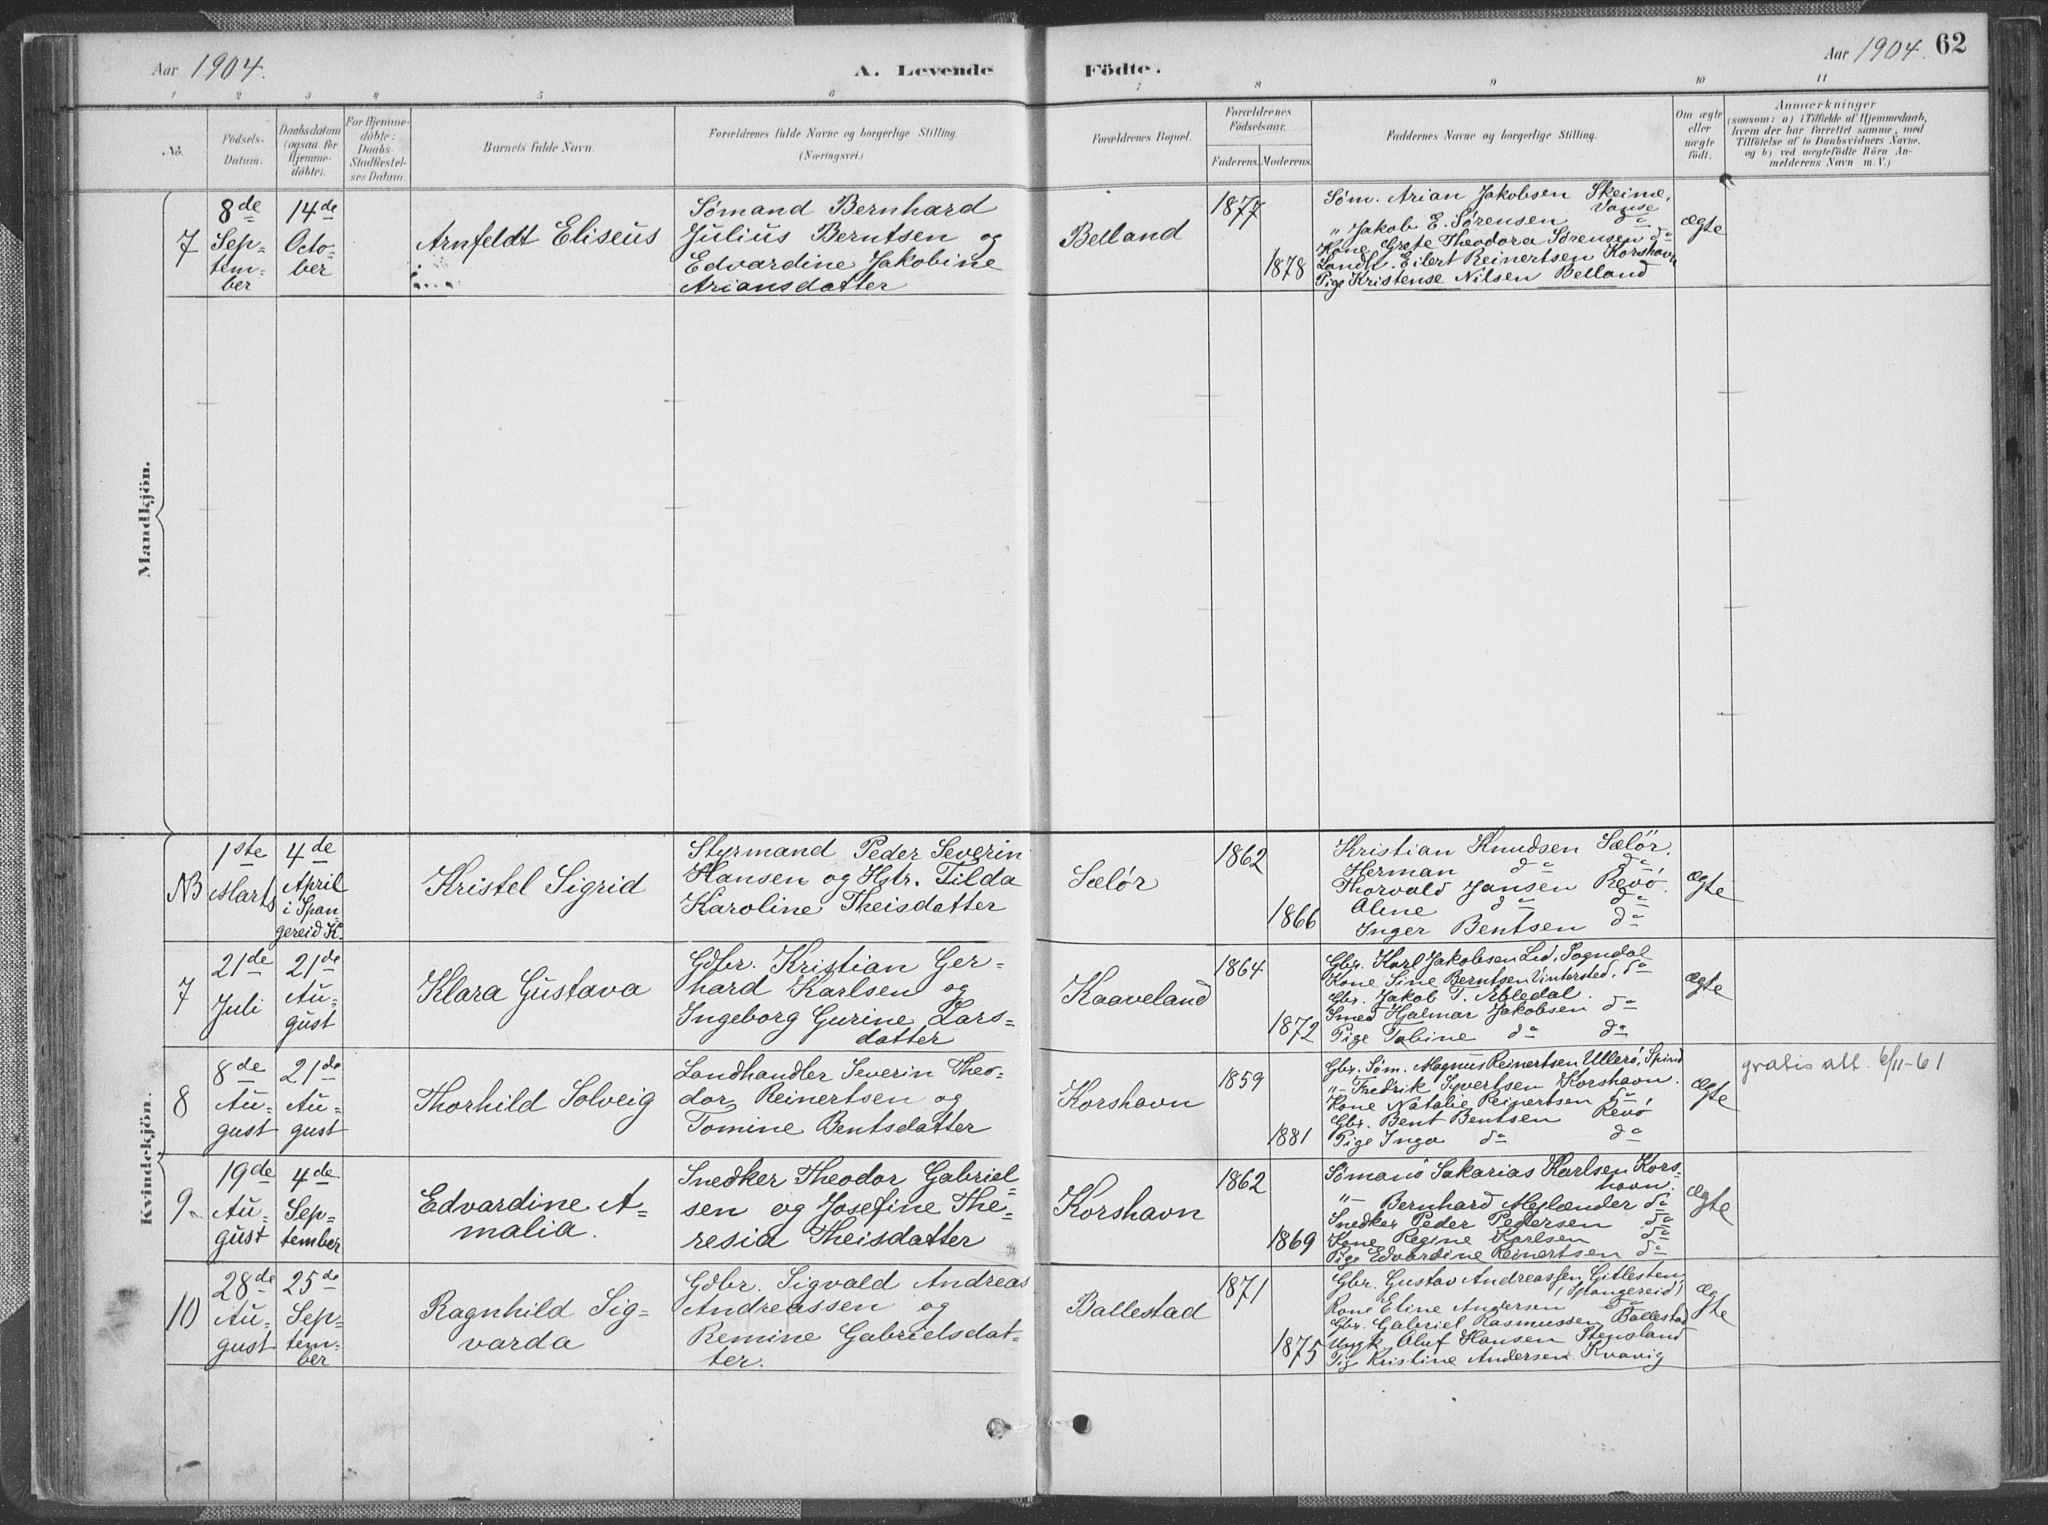 Aar 1904.
A. Levende
Födte.
Aar 1904. 62
1 2 3 4 5 6 7 8 9 10 11
No.
Födsels-Datum.
Daabsdatum (ogsaa for Hjemme-döbte).
For Hjemme-döbte: Daabs-Stadfæstel-ses Datum.
Barnets fulde Navn.
Forældrenes fulde Navne og borgerlige Stilling.
(Næringsvei.)
Forældrenes Bopæl.
Forældrenes Födselsaar.
Faderens. Moderens.
Faddernes Navne og borgerlige Stilling.
Om ægte eller uægte födt.
Anmærkninger
(saasom: a) i Tilfælde af Hjemmedaab,
hvem der har forrettet samme, med
Tilföielse af to Daabsvidners Navne,
og b) ved uægtefödte Börn An-
melderens Navn m. V.)
Mandkjön.
7
8de
Sep-
tem-
ber
14de
Octo-
ber
Arnfeldt Eliseus
Sømand Bernhard
Julius Berntsen og
Edvardine Jakobine
Ariansdatter
Belland
1877
1878
Søm. Arian Jakobsen Skeime,
Vanse
" Jakob E. Sørensen do
Kone Grete Theodora Sørensen do
Landh. Eilert Reinertsen Korshavn
Pige Kristense Nilsen Belland
Ægte
Kvindekjön.
NB
1ste
Marts
4de
April
i Span-
gereid K.
Kristel Sigrid
Styrmand Peder Severin
Hansen og Hstr. Tilda
Karoline Theisdatter
Sælør
1862
1866
Kristian Knudsen Sælør.
Herman do do
Thorvald Jansen Revö.
Oline do do
Inger Bentsen do
Ægte
7
21de
Juli
21de
Au-
gust
Klara Gustava
Gdbr. Kristian Ger-
hard Karlsen og
Ingeborg Gurine Lars-
datter
Kaaveland
1864
1872
Gbr. Karl Jakobsen Lid, Sogndal
Kone Sine Berntsen Vintersted, do
Gbr. Jakob T. Abledal.
Smed Hjalmar Jakobsen do
Pige Tobine do do
Ægte
8
8de
Au-
gust
21de
Au-
gust
Thorhild Solveig
Landhandler Severin Theo-
dor Reinertsen og
Tomine Bentsdatter
Korshavn
1859
1881
Gbr. Søm. Magnus Reinertsen Ullerö, Spind
"- Fredrik Syvertsen Korshavn.
Kone Natalie Reinertsen do
Gbr. Bent Bentsen Revö
Pige Inga do do
Ægte
gratis att. 6/11-61
9
19de
Au-
gust
4de
Sep-
tember
Edvardine A-
malia.
Snedker Theodor Gabriel-
sen og Josefine The-
resia Theisdatter
Korshavn
1862
1869
Sømand Sakarias Karlsen Kors-
havn.
"- Bernhard Meylænder do
Snedker Peder Pedersen do
Kone Regine Karlsen do
Pige Edvardine Reinertsen do
Ægte
10
28de
Au-
gust
25de
Sep-
tem-
ber
Ragnhild Sig-
varda
Gdbr. Sigvald Andreas
Andreassen og
Remine Gabrielsdat-
ter.
Ballestad
1871
1875
Gbr. Gustav Andreassen Gitlesten,
(Spangereid)
Kone Eline Andersen do
Gbr. Gabriel Rasmussen Ballestad
Ungk. Oluf Hansen Stensland
Pig. Kristine Andersen Kvavig
Ægte